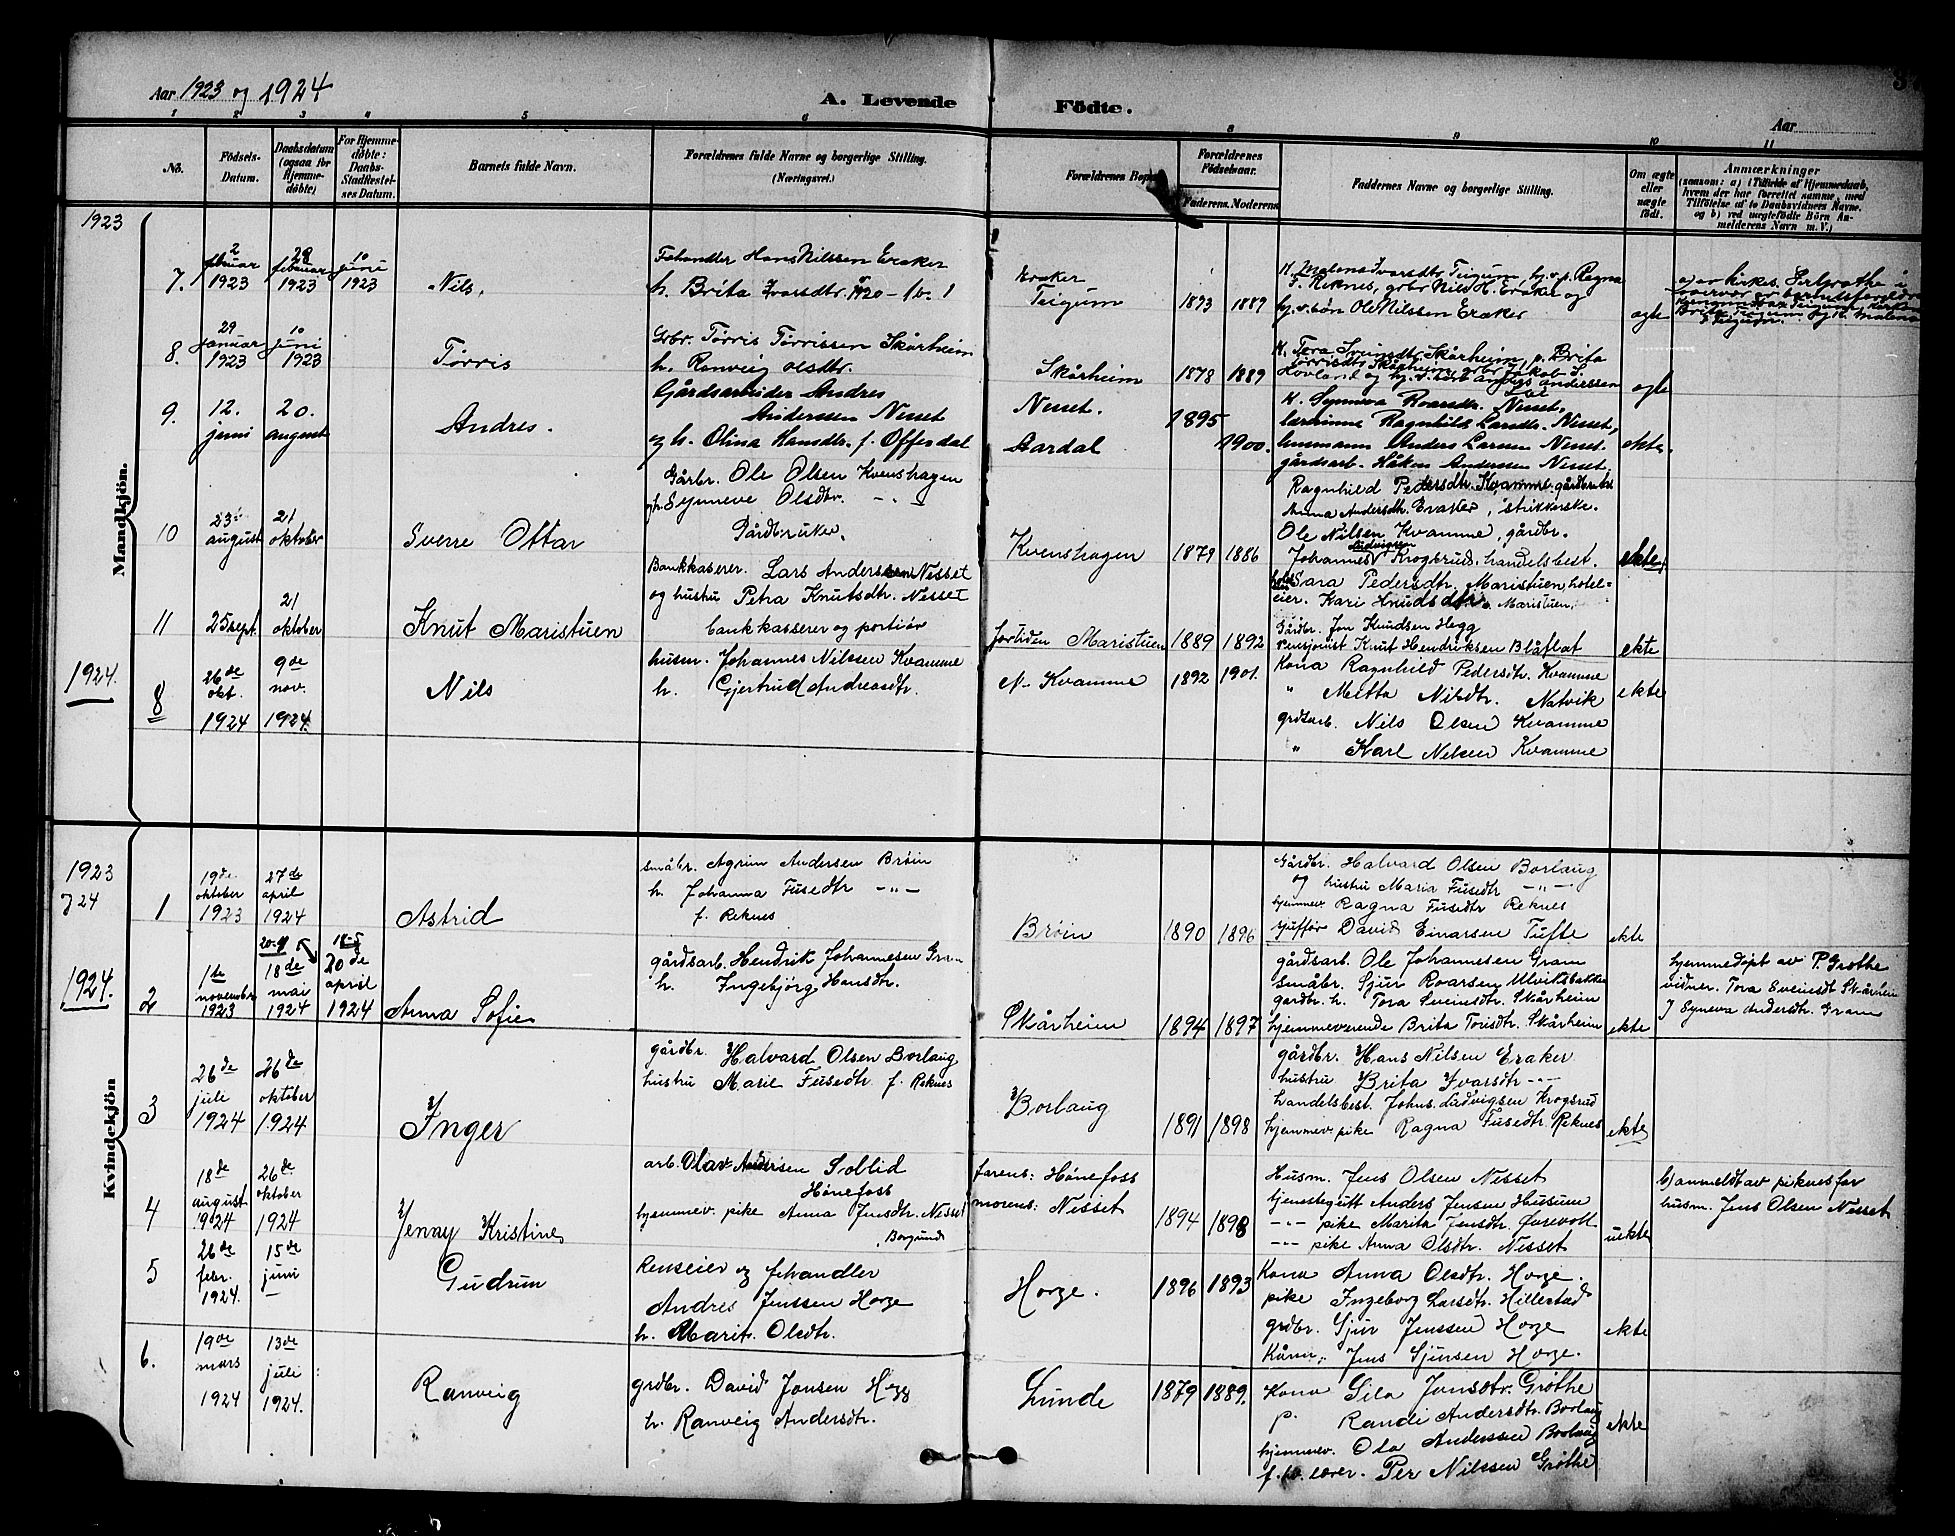 Aar 1923 og 1924
A. Levende Födte.
Aar
1 2 3 4 5 6 8 9 10 11
No.
Födsels-Datum.
Daabsdatum (ogsaa for Hjemmedöbte)
For Hjemmedöbte: Daabs-Stadfæstelses Datum.
Barnets fulde Navn.
Forældrenes fulde Navne og borgerlige Stilling.
(Næringsvei.)
Forældrenes
Forældrenes Födselsaar.
Faderens. Moderens.
Faddernes Navne og borgerlige Stilling.
Om ægte eller uægte födt.
Anmærkninger
(saasom: a) i Tilfælde af Hjemmedaab, hvem der har forrettet samme, med Tilföielse af to Daabsvidners Navne. og b) ved uægtefödte Börn Anmelderens Navn m. V.)
1923
Mandkjön.
7. 2 februar 1923
februar 1923
10 juni 1923
Nils.
Fehandler Hans Nilssen Eraker
h. Brita Ivarsdtr.
Eraker
Teigum
1893 1889
K. Malena Ivarsdtr Teigum, p. Ragna
F. Reknes, grbr Nils H. Eraker og
Ole Nilssen Eraker
egte
8. 29 januar 1923
10 juni 1923
Tørris
Grbr. Tørris Tørrissen Skårheim
h. Ranveig Olsdtr.
Skårheim
1878 1889
K. Tora Sveinsdtr Skårheim, p. Brita
Tørrisdtr Skårheim grbr Jakob S.
Hovland og
egte
9. 12. juni
20. august
Andres.
Gårdsarbeider Andres
Anderssen Nesset
og h. Olina Hansdtr. f. Offerdal
Nesset.
Aardal
1895
1900.
K. Synneva Roarsdtr. Nesset,
lærerinne Ragnhild Larsdtr. Nesset,
husmann Anders Larsen Nesset
gårdsarb. Håkon Anderssen Nesset.
ekte.
10 23 august
21 oktober
Sverre Ottar
Gårbr. Ole Olsen Kvenshagen
og h. Synneve Olsdtr. -"-
Gårdbruker.
Kvenshagen
1879 1886
Ragnhild Pedersdtr. Kvamme. gårdbr.
Anna Andersdtr. Eraker, strikkerske.
Ole Nilsen Kvamme, gårdbr.
Johannes Ludvigsen Krogsrud, handelsbest.
ekte
11 25 sept.
21 oktober
Knut Maristuen
Bankkaserer. Lars Anderssen Nesset
og hustru Petra Knutsdtr. Nesset
bankkasserer og portiør
Maristuen
1889 1892
Sara Pedersdtr. Maristuen, hotel-
eier. Kari Knudsdtr. Maristuen,
Gårdbr. Jon Knudsen Hegg
Pensjonist Knut Hendriksen Blåflat
ekte
1924.
8 26de okt. 1924
9de nov. 1924.
Nils
husm. Johannes Nilssen Kvamme
h. Gjertrud Andreasdtr.
N- Kvamme
1892 1901.
Kona Ragnhild Pedersdtr. Kvamme
" Metta Nilsdtr. Natvik
grdsarb. Nils Olsen Kvamme
" Karl Nilsen Kvamme
ekte
1923
24
Kvindekjön
1 19de oktober 1923
27de april 1924
Astrid
småbr. Agrim Andersen Brøin
h. Johanna Fusedtr -"-
f. Reknes
Brøin
1890 1896
Gårdbr. Halvard Olsen Borlaug
og hustru Maria Fusedtr -"-
hjemmev. Ragna Fusedtr Reknes
sjufför David Einarsen Tufte
ekte
1924.
2 1ste november 1923
18de mai 1924
20de april 1924
Anna Sofie
gårdsarb. Hendrik Johannesen
h. Ingebjörg Hansdtr.
Skårheim
1894 1897
gårdsarb. Ole Johannesen Gram
småbr. Sjur Roarsen Ulviksbakken
gardbr. h. Tora Sveinsdtr. Skårheim
hjemmeverende Brita Torisdtr. Skårheim
ekte
hjemmedöpt av P. Grøthe
vidner. Tora Sveinsdt Skårheim
Synneva Andersdtr. Gram
3 26de juli 1924
26de oktober 1924
Inger
gårdbr. Halvard Olsen Borlaug
hustru Marie Fusedtr. f. Reknes
Borlaug
1891 1898
gårdbr. Hans Nilsen Eraker
hustru Brita Ivarsdtr -"-
Handelsbest. Johns. Ludvigsen Krogsrud
hjemmev. pike Ragna Fusedtr. Reknes
ekte
4 18de august 1924
26de oktober 1924
Jenny Kristine
arb. Olav Andersen Sollid
Hønefoss
hjemmev. pike Anna Jensdtr. Nesset
Borgund
farens: Hønefoss
morens: Nesset
1894 1898
Husm. Jens Olsen Nesset
tjenestegutt Anders Jensen Husum
-"- pike Marita Jensdtr.
-"- pike Anna Olsdtr. Nesset
uekte
b) anmeldt av pikens far
husm. Jens Olsen Nesset
5 26de febr. 1924.
15de juni
Gudrun
Renseier og fehandler
Andres Jenssen Horge
h. Marit Olsdtr.
Horge.
1896 1893
Kona Anna Olsdtr. Horge.
pike Ingeborg Larsdtr. Hillestad
grdbr. Sjur Jenssen Horge
Jens Sjursen Horge.
ekte
6. 19de mars 1924
13de juli 1924.
Ranveig
grdbr. David Jonsen Hegg
h. Ranveig Andersdtr.
Lunde
1879 1889.
Kona Sila Jonsdtr. Grøthe
p. Randi Andersdtr. Borlaug
hjemmev. Ola Anderssen Borlaug
f. lærer. Per Nilssen Grøthe
ekte